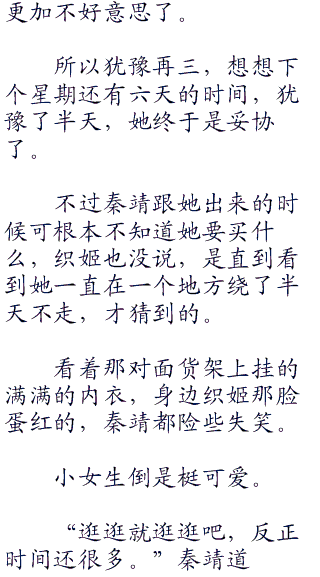 更加不好意思了。
所以犹豫再三，想想下
个星期还有六天的时间，犹
豫了半天，她终于是妥协
了。
不过秦靖跟她出来的时
候可根本不知道她要买什
么，织姬也没说，是直到看
到她一直在一个地方绕了半
天不走，才猜到的。
看着那对面货架上挂的
满满的内衣，身边织姬那脸
蛋红的，秦靖都险些失笑。
小女生倒是梃可爱。
“逛逛就逛逛吧，反正
时间还很多。”秦靖道